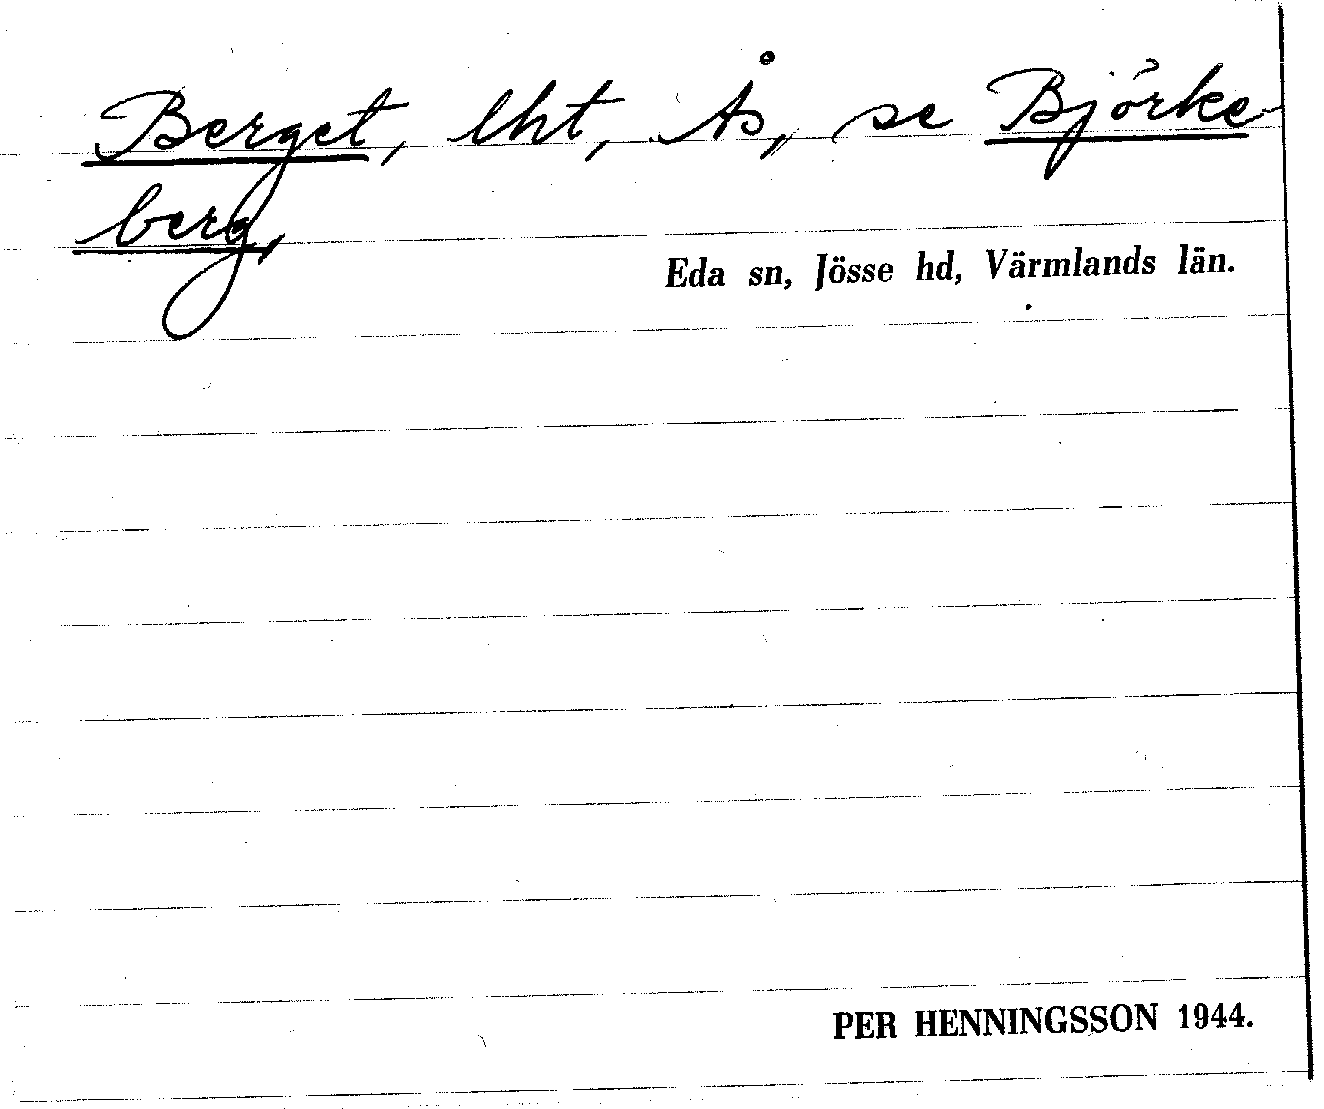 Berget, lht, Ås, se Björke-
berg,
Eda sn, Jösse hd, Värmlands län.
PER HENNINGSSON 1944.